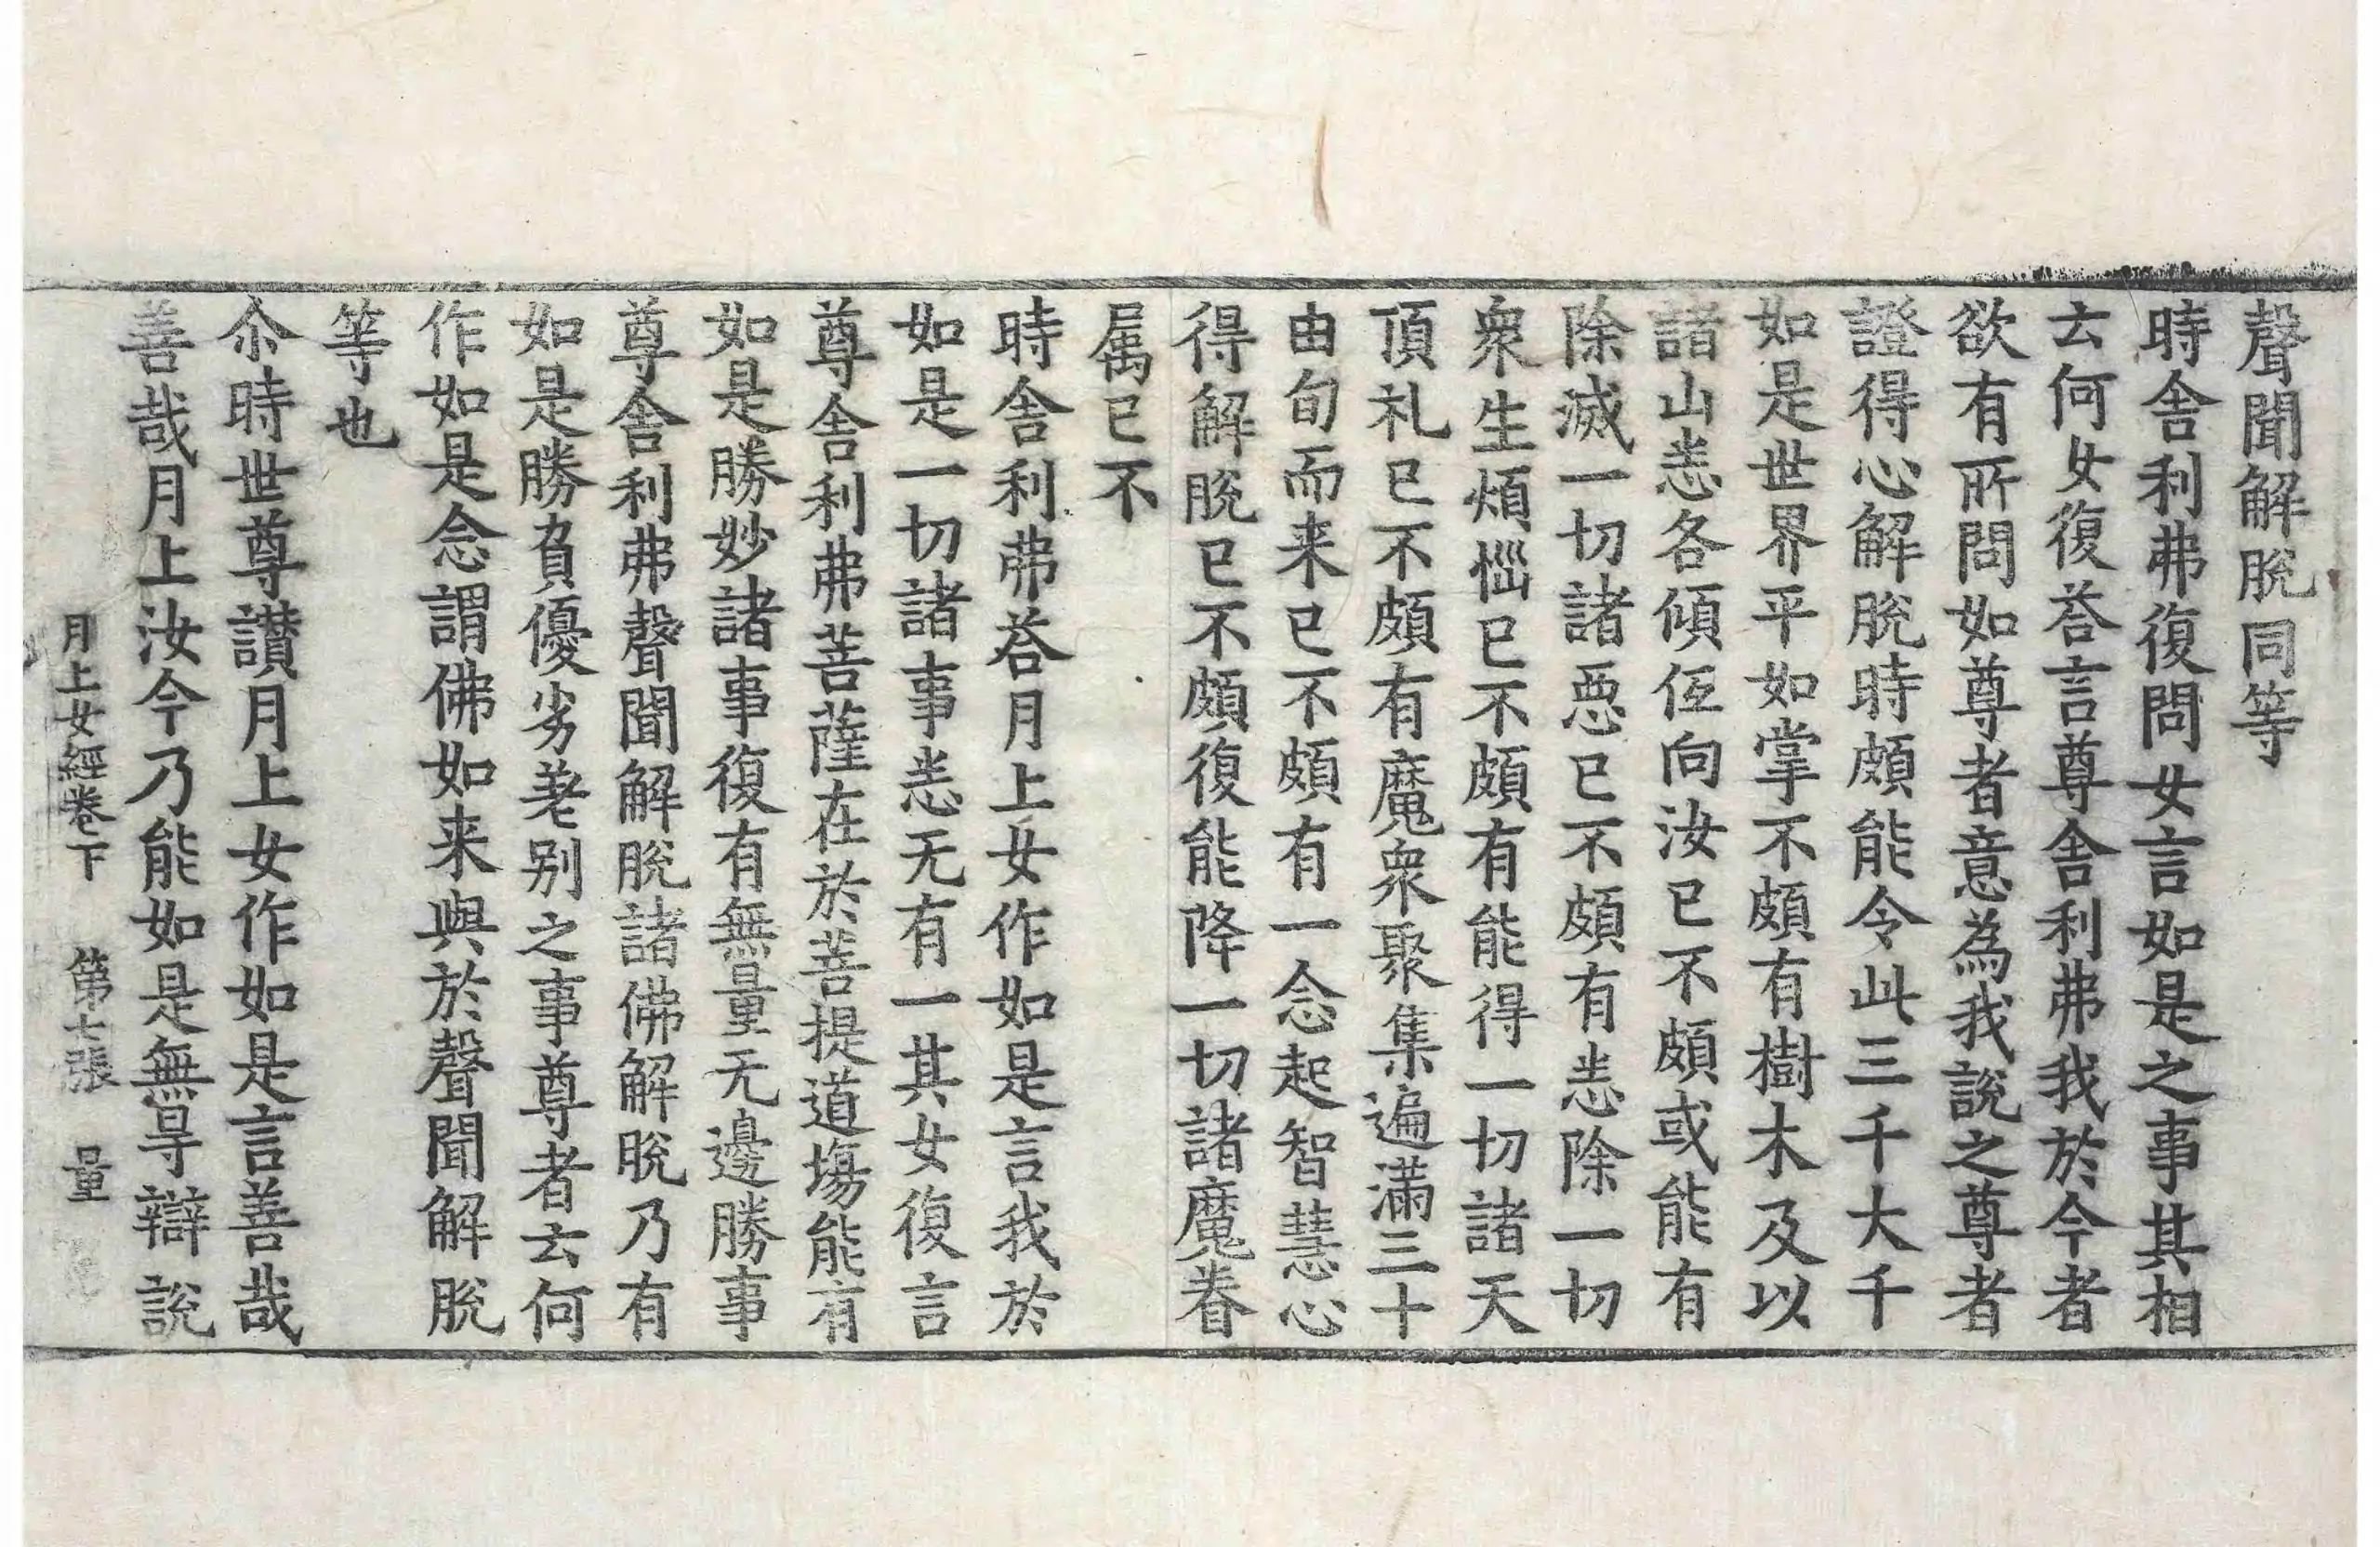 聲聞解脫同等
時舍利弗復問女言如是之事其相
云何女復荅言尊舍利弗我於今者
欲有所問如尊者意為我說之尊者
證得心解脫時頗能令此三千大千
如是世界平如掌不頗有樹木及以
諸山悉各傾仾向汝已不頗或能有
除滅一切諸惡已不頗有悉除一切
衆生煩惱已不頗有能得一切諸天
頂礼已不頗有魔衆聚集遍滿三十
由旬而来已不頗有一念起智慧心
得解脫已不頗復能降一切諸魔眷
属已不
時舍利弗荅月上女作如是言我於
如是一切諸事悉无有一其女復言
尊舍利弗菩薩在於菩提道場能有
如是勝妙諸事復有無量无邊勝事
尊舍利弗聲聞解脫諸佛解脫乃有
如是勝負優劣差别之事尊者云何
作如是念謂佛如来與於聲聞解脫
等也
尒時世尊讃月上女作如是言善哉
善哉月上汝今乃能如是無㝵辯說
月上女經卷下　第七張　量